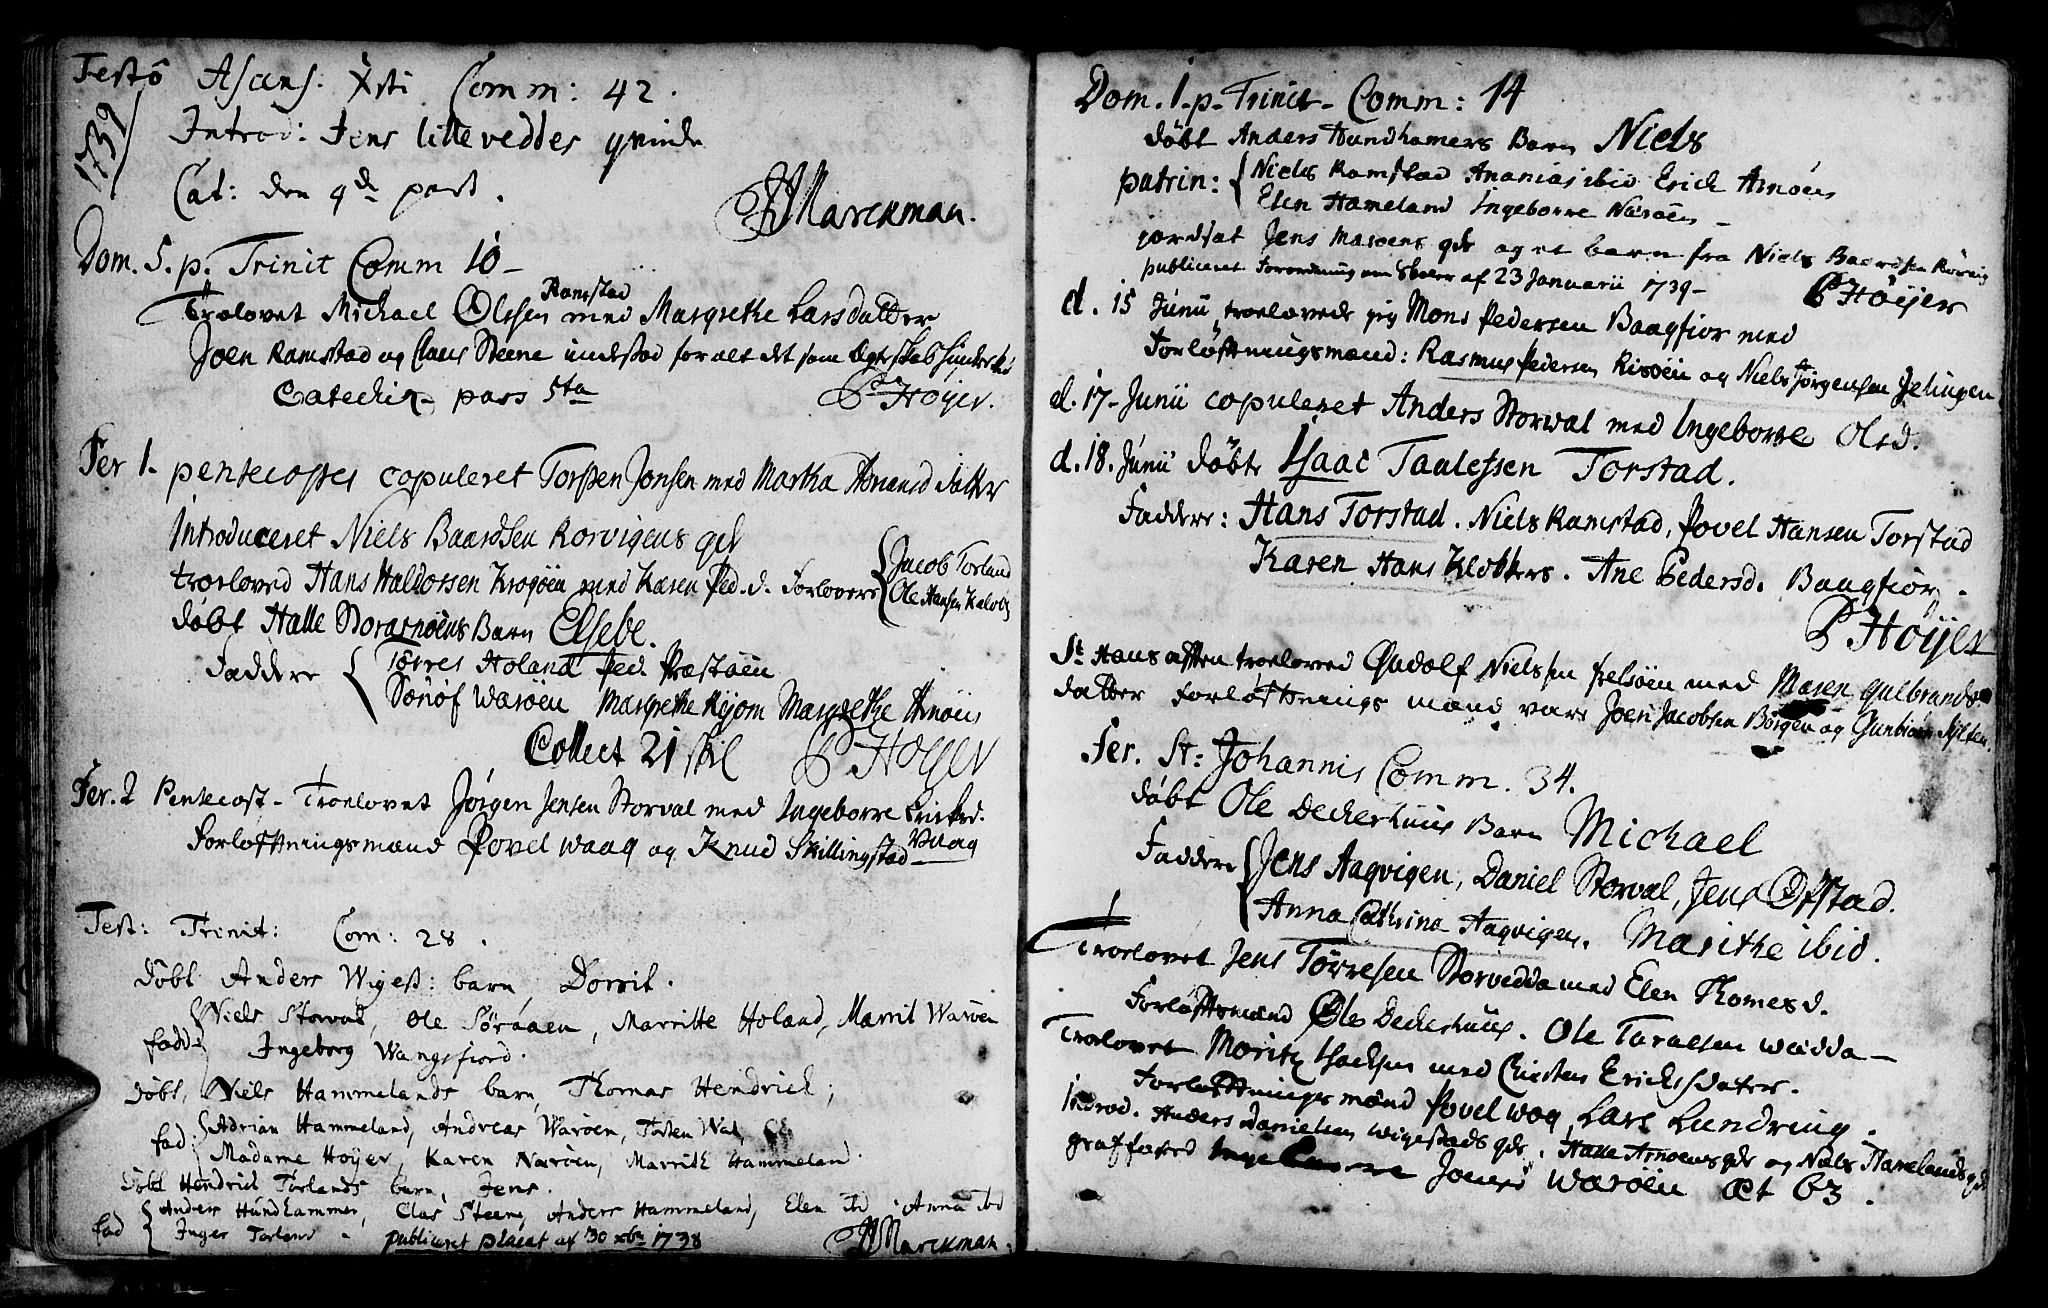 Festo Ascens: Xsti Comm: 42.
1739
Introd: Jens lilleveddes qvinde
Cat: den 9de part.
Marckman.
Dom. 5. p. Trinit Comm 10
Ramstad
Troelovet Michael Olssen med Margrethe Larsdatter
Joen Ramstad og Claus Steene indestod for alt det som
Catechis pars 5ta
P Höyer.
Fer 1. pentecostes copuleret Torsten Jonsen med Martha
Introduceret Niels Baardsen Rorvigens qv
troeloved Hans Haldorssen Krogøen med Karen Ped. d. Forlovere { Jacob Torland
Ole Hansen
døbt Halle Storarnöens Barn Elsebe.
Faddere { Törres Holand Ped: Præstöen
Sönof Waröen Margrethe Margrethe Arnöen
Collect 21 skil P Höyer
Fer. 2 Pentecost - Troelovet Jörgen Jensen Storval med Ingeborre Ericksd.
Forløftningsmænd Povel Waag og Knud Skillingstad
Fest: Trinit: Com: 28.
døbt Anders Wigest: barn, Dorrit.
fadd { Niels Storval, Ole Söraaen, Marritte Holand, Marrit Waröen
Ingeborg Wangsfiord.
døbt, Niels Hammelands barn, Thomas Hendrick;
fad: { Adrian Hammeland, Andreas Waröen, Torsten Wal,
Madame Höyer, Karen Naröen, Marrith Hammeland.
døbt Hendrick Torlands barn, Jens.
fad { Anders Hundhammer, Clas Steene, Anders Hammeland, Elen Ibd Anna ibd
Inger Torland - publiceret placat af 30 xbr 1738 Marckman.
Dom. 1. p. Trinit - Comm: 14
døbt Anders Hundhamers Barn Niels
patrin: { Niels Ramstad Ananias ibid Erick Arnöen
Elen Hameland Ingeborre Naröen -
jordsat Jens Maroens og et barn fra Niels Baardsen Rörvig
publiceret Forordning om Skoler af 23 Januarii 1739 -
P Höyer
d. 15 Junii troelovede jeg Mons Pedersen Baagfior med
Forløftningsmænd: Rasmus Pedersen Risöen og Niels Jörgensen
d. 17 - Junii copuleret Anders Storwal med Ingeborre Olsd.
d. 18. Junii døbte Isaac Taulessen Torstad.
Faddere: Hans Torstad. Niels Ramstad, Povel Hansen Torstad
Karen Hans Klobkers. Ane Pedersd. Baagfior.
P Höyer
St Hans aften troeloved Gudolf Nielssen med Maren Gulbrands
datter Forløftnings mænd vare Joen Jacobsen Börgen og Gunbiörn
Fer. St: Johannis Comm. 34.
døbt Ole Deckerhuus Barn Michael
Faddere { Jens Aagvigen, Daniel Storval, Jens Ofstad.
Anna Cathrina Aagvigen. Marithe ibid.
Troelovet Jens Törresen Storvedda med Elen Thomesd.
Forløftsmænd Ole Deckerhuus. Ole Taralsen Wædda -
Troelovet Moritz Isacksen med Chirsten Ericksdatter.
Forløftnings mænd Povel Wog, Lars Lundring.
Introd. Anders Danielsen Wigestads qv. Halle Arnoens qv og Niels Hamelands qv
graffæsted Jonsd Waröen æt 63.